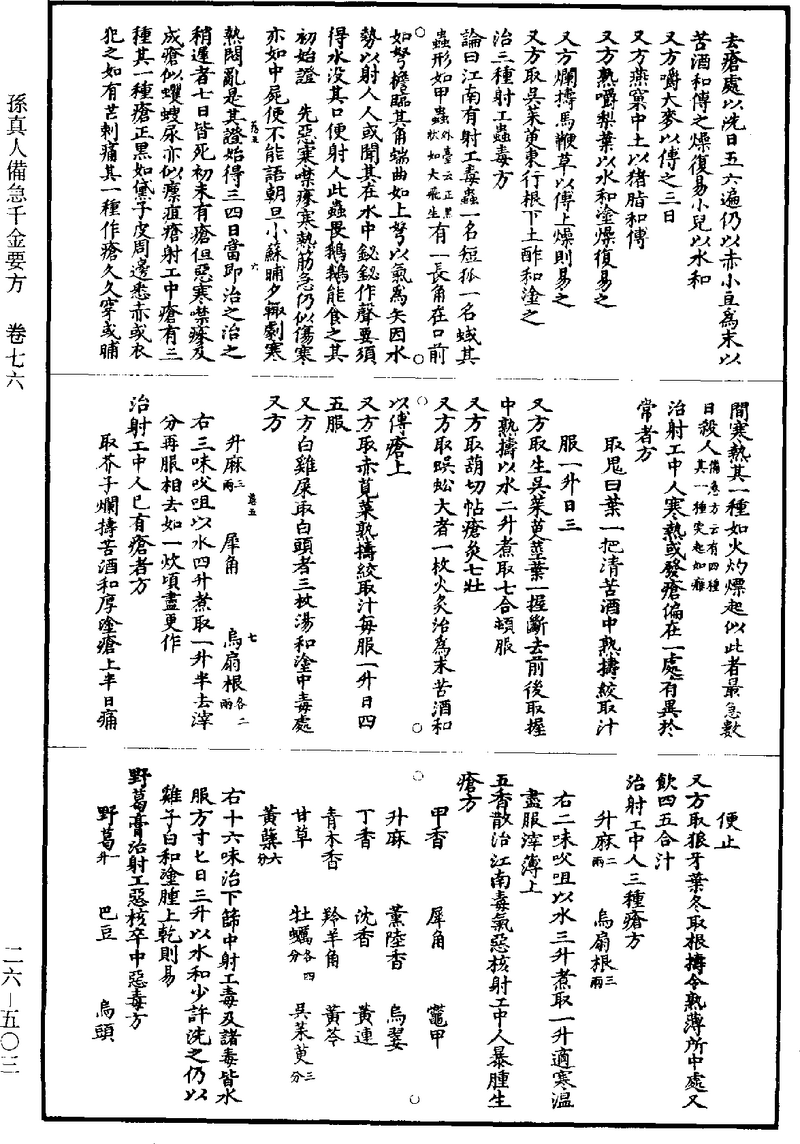 孫真人備急千金要方　卷七六
去瘡處以洗日五六遍仍以赤小豆為末以
苦酒和傅之燥復易小兒以水和
又方嚼大麥以傅之三日
又方燕窠中土以猪脂和傅
又方熟嚼梨葉以水和塗燥復易之
又方爛搗馬鞭草以傅上燥則易之
又方取吳茱萸東行根下土酢和塗之
治三種射工蟲毒方
論曰江南有射工毒蟲一名短狐一名蜮其
蟲形如甲蟲外臺云正黑狀如大飛生有一長角在口前
如弩檐臨其角端曲如上弩以氣為矢因水
勢以射人人或聞其在水中鉍鉍作聲要須
得水沒其口便射人此蟲畏鵝鵝能食之其
初始證　先惡寒噤㾕寒熱筋急仍似傷寒
亦如中屍便不能語朝旦小蘇晡夕輒劇寒
卷五　六
熱悶亂是其證始得三四日當即治之治之
稍遲者七日皆死初未有瘡但惡寒噤㾕及
成瘡似蠼螋尿亦似瘭疽瘡射工中瘡有三
種其一種瘡正黑如黛子皮周邊悉赤或衣
犯之如有芒刺痛其一種作瘡久久穿或晡
間寒熱其一種如火灼熛起似此者最急數
日殺人備急方云有四種其一種突起如癰
治射工中人寒熱或發瘡偏在一處有異於
常者方
取鬼臼葉一把清苦酒中熟搗絞取汁
服一升日三
又方取生吳茱萸莖葉一握斷去前後取握
中熟搗以水二升煮取七合頓服
又方取葫切帖瘡灸七壯
又方取蜈蚣大者一枚火炙治為末苦酒和
以傅瘡上
又方取赤莧菜熟搗絞取汁每服一升日四
五服
又方白雞屎取白頭者三枚湯和塗中毒處
又方
升麻三兩　犀角　烏扇根各二兩
卷五　七
右三味㕮咀以水四升煮取一升半去滓
分再服相去如一炊頃盡更作
治射工中人已有瘡者方
取芥子爛搗苦酒和厚塗瘡上半日痛
便止
又方取狼牙葉冬取根搗令熟薄所中處又
飲四五合汁
治射工中人三種瘡方
升麻二兩　烏扇根三兩
右二味㕮咀以水三升煮取一升適寒溫
盡服滓薄上
五香散治江南毒氣惡核射工中人暴腫生
瘡方
甲香　犀角　鼈甲
升麻　薰陸香　烏翣
丁香　沈香　黃連
青木香　羚羊角　黃芩
甘草　牡蠣各四分　吳茱萸三分
黃蘗六分
右十六味治下篩中射工毒及諸毒皆水
服方寸匕日三升以水和少許洗之仍以
雞子白和塗腫上乾則易
野葛膏治射工惡核卒中惡毒方
野葛一升　巴豆　烏頭
二六—五〇三